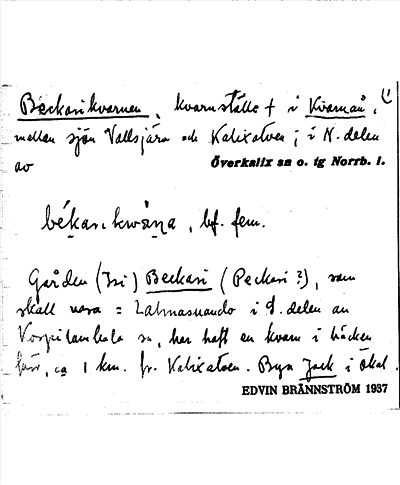 Beckasikvarnen, kvarnställe † i Kvarnån, 1)
mellan sjön Vallsjärv och Kalixälven; i N. delen
av Överkalix sn o. tg Norrb. l.
békasıkwāṇa, bf. fem.
Gården (Isi) Beckasi (Peckasi?), som
skall vara = Lahnasuando i S. delen av
Korpilombolo sn, har haft en kvarn i bäcken
här, ca 1 km. fr. Kalixälven. Byn Jock i Ökal.
EDVIN BRÄNNSTRÖM 1937